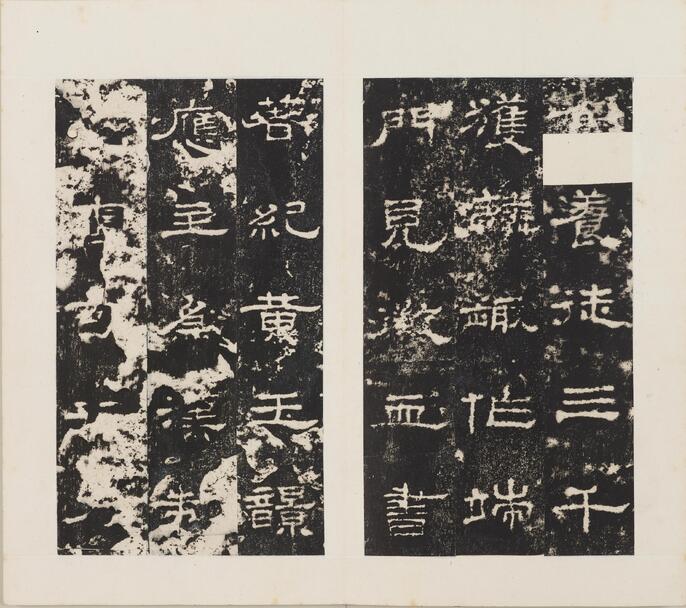 養徒三千
獲麟趣作端
門見徵血書
著紀黃玉韻
應主為漢制
可